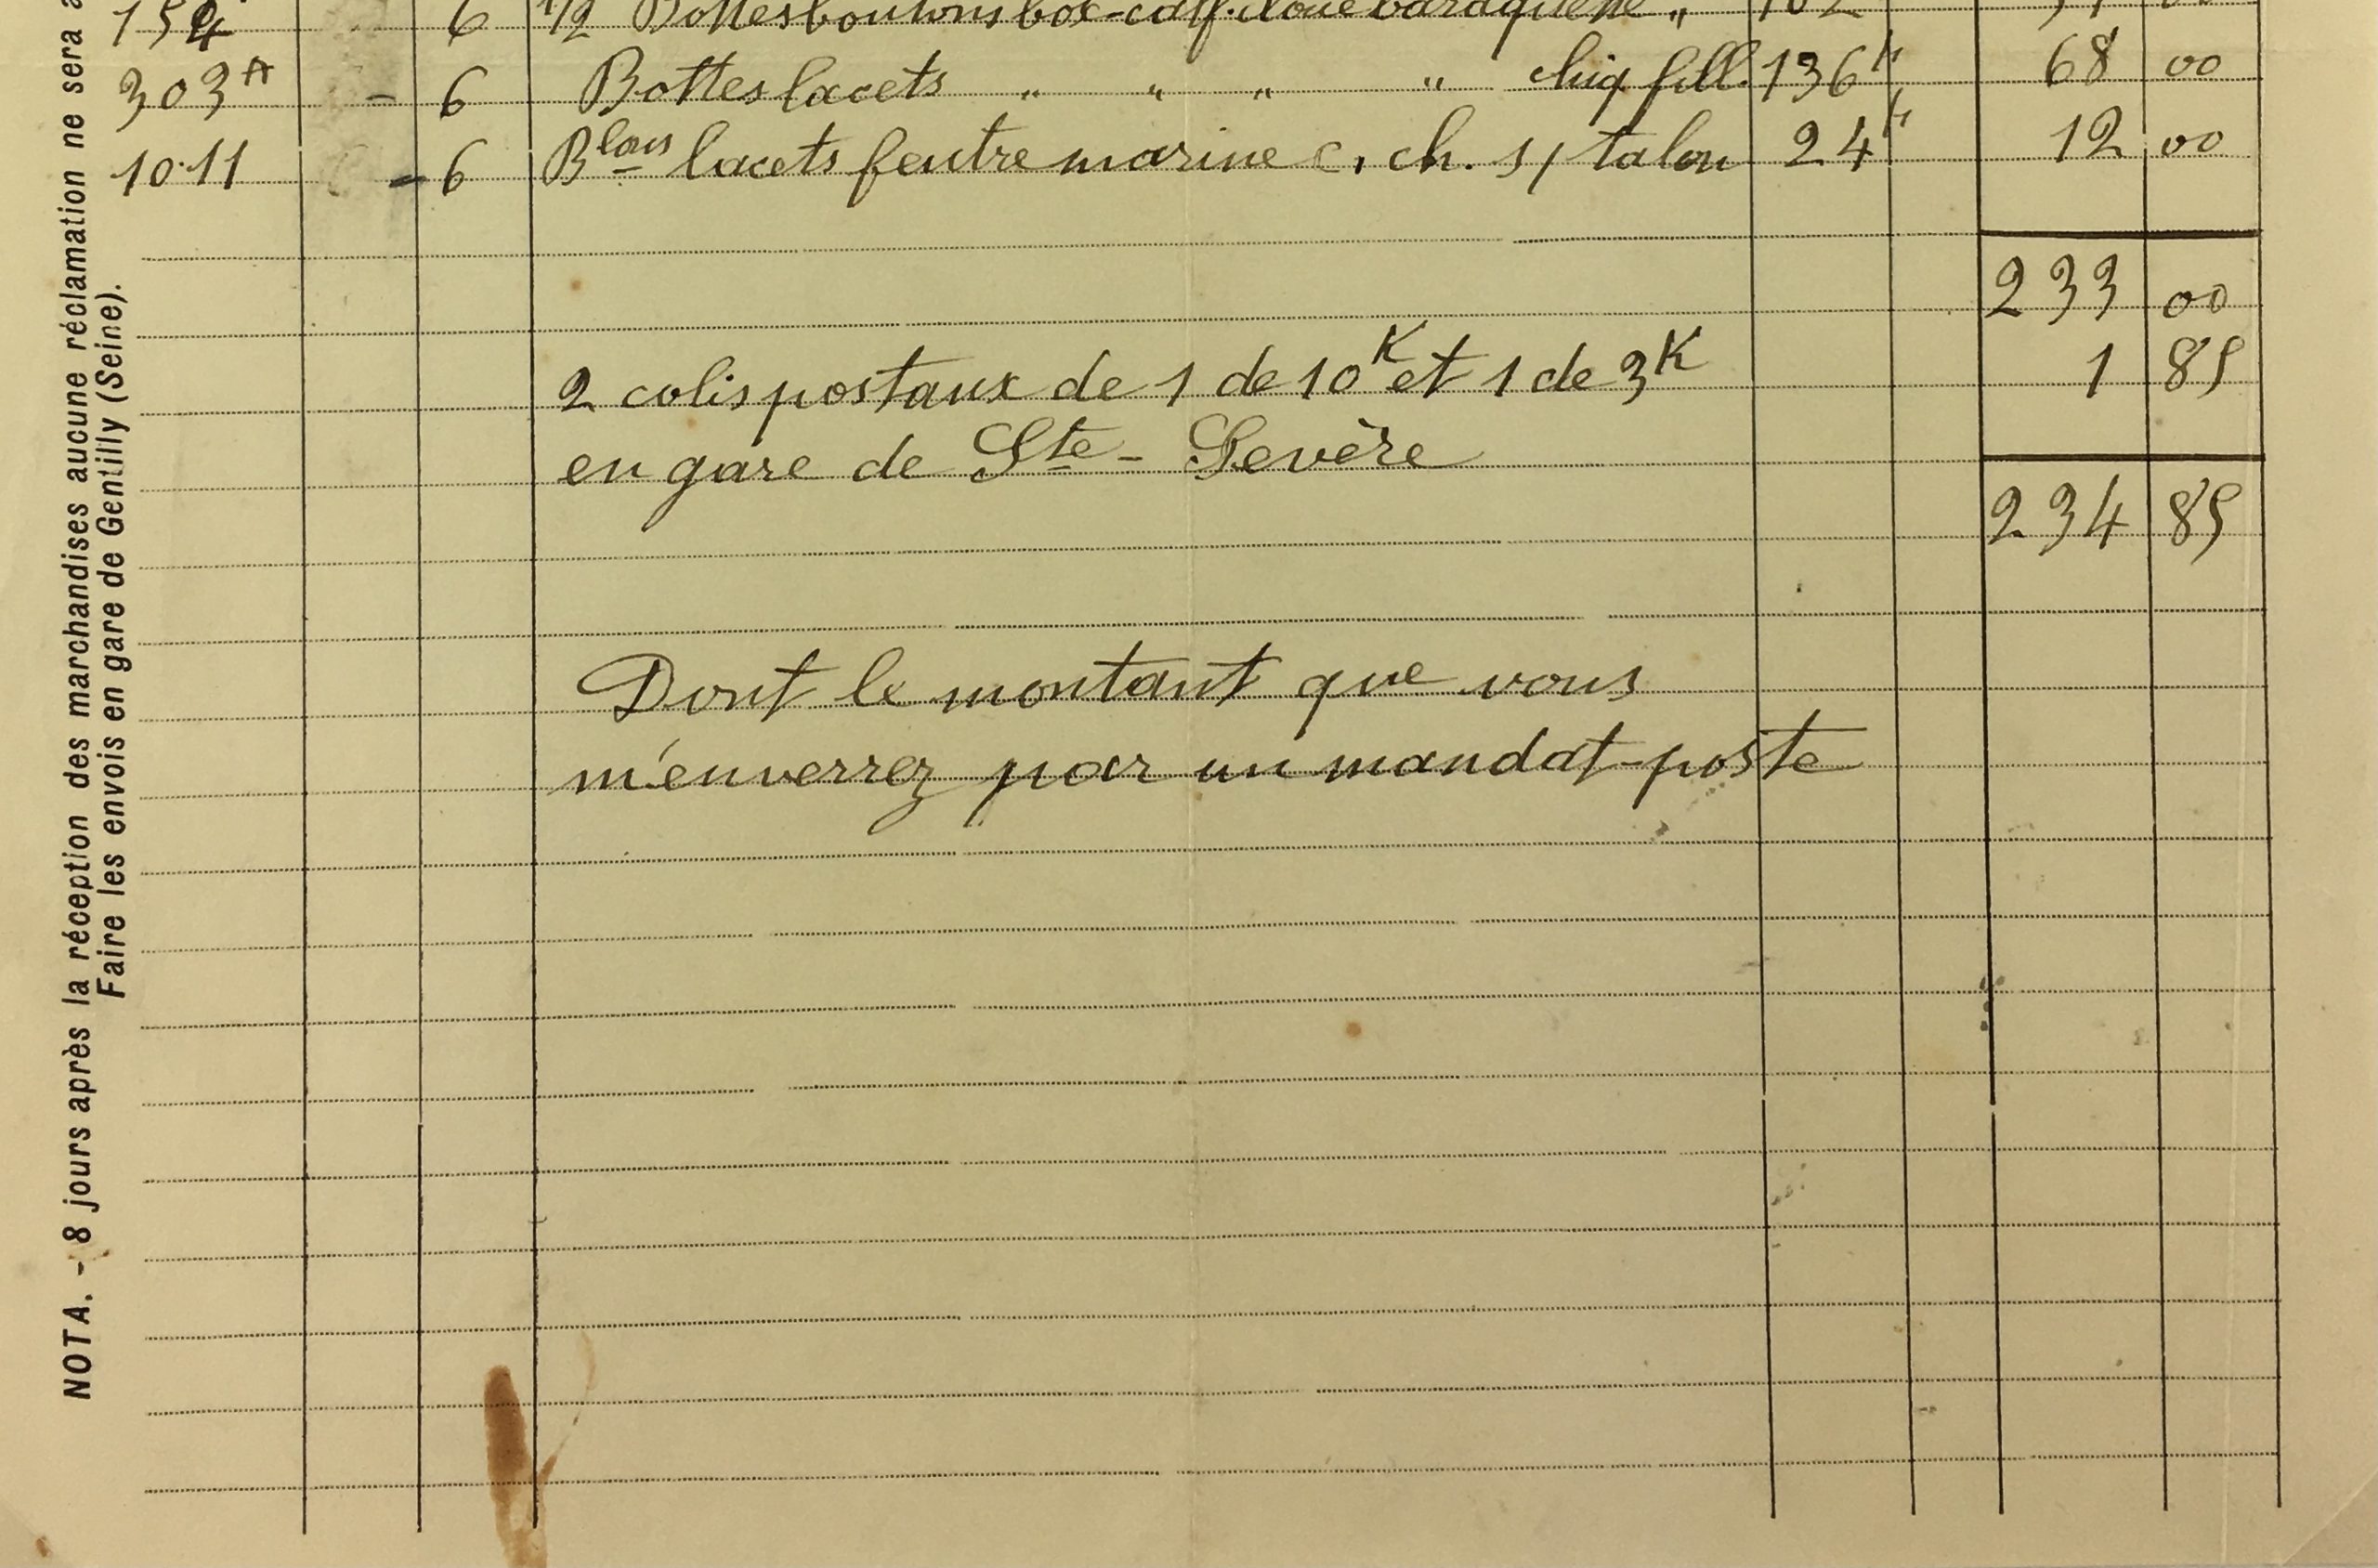 154 6 1/2 Bottes boutons box-calf. cloué " 102
303A - 6 Bottes lacets " " " " chiq fill. 136 " 68 00
10.11 - 6 Blons lacets feutre marine c. ch. s/ talon 24 " 12 00
233 00
2 colis postaux de 1 de 10K et 1 de 3K 1 85
en gare de Ste-Sevère
234 85
Dont le montant que vous
m'enverrez par un mandat-poste
NOTA. - 8 jours après la réception des marchandises aucune réclamation ne sera
Faire les envois en gare de Gentilly (Seine).